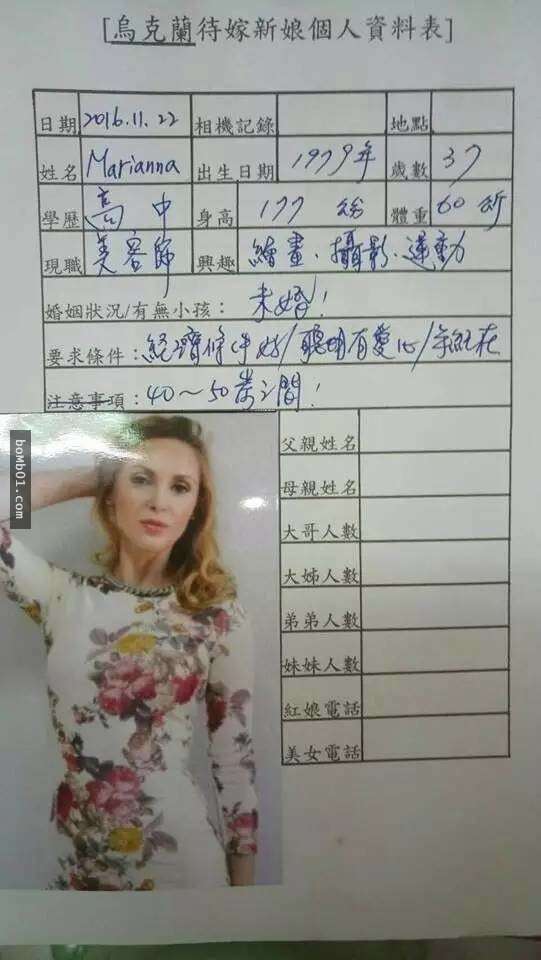 [烏克蘭待嫁新娘個人資料表]
日期 2016.11.22 相機記錄 地點
姓名 Marianna 出生日期 1979年 歲數 37
學歷 高中 身高 177 公分 體重 60 公斤
現職 美容師 興趣 繪畫、攝影、運動
婚姻狀況/有無小孩: 未婚!
要求條件: 經濟條件好/聰明有愛心/年紀在
注意事項: 40~50歲之間!
父親姓名
母親姓名
大哥人數
大姊人數
弟弟人數
妹妹人數
紅娘電話
美女電話
bomb01.com